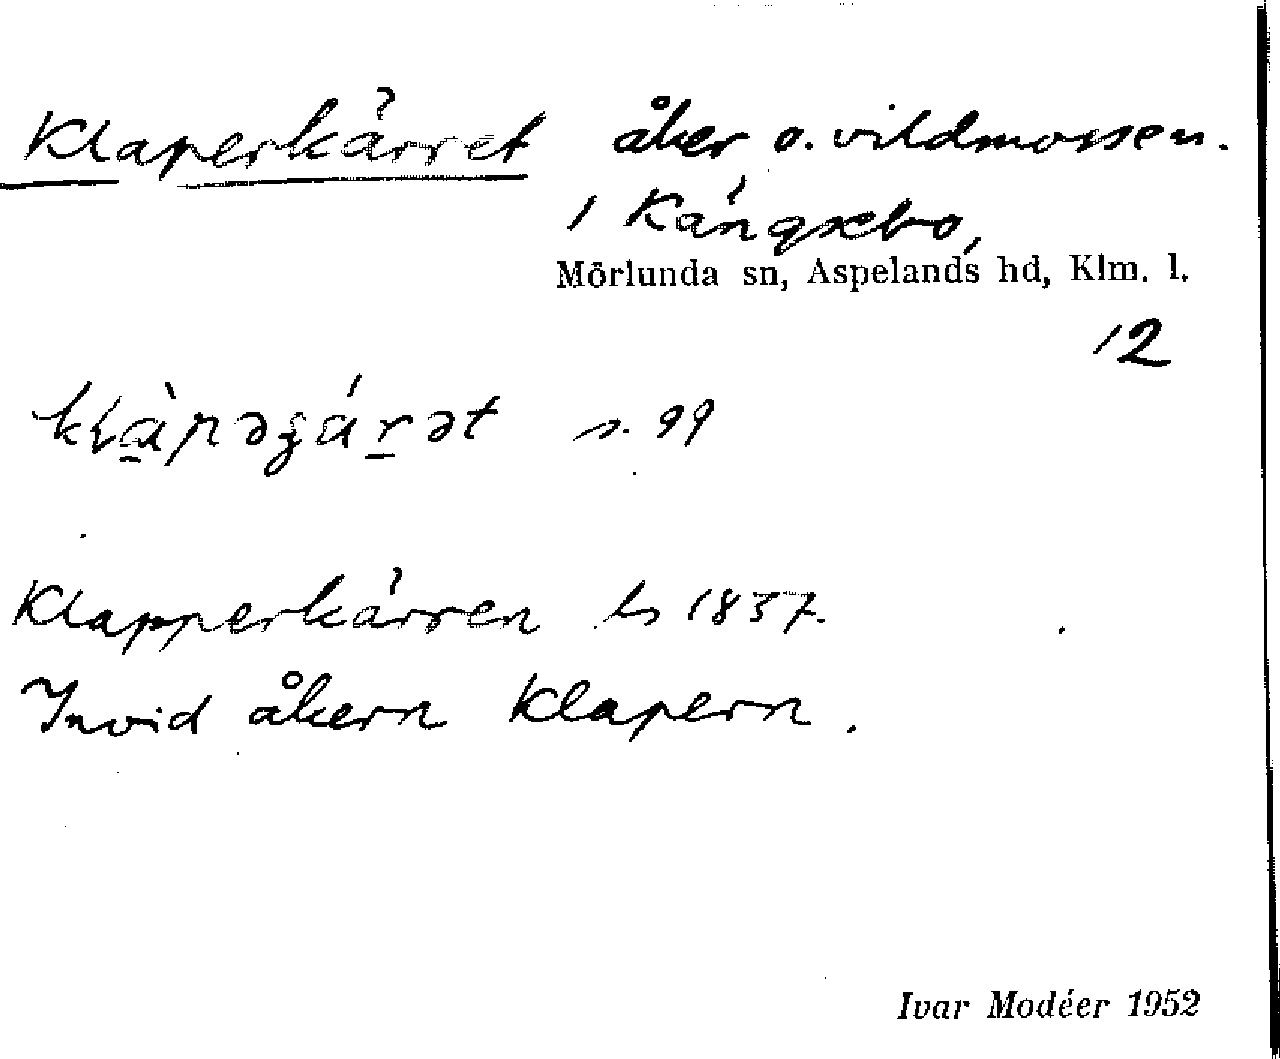 Klaperkärret åker o. vildmossen.
1 Kängsebo,
Mörlunda sn, Aspelands hd, Klm. l.
12
s. 99
Klapperkärren ls 1837.
Invid åkern Klapern.
Ivar Modéer 1952